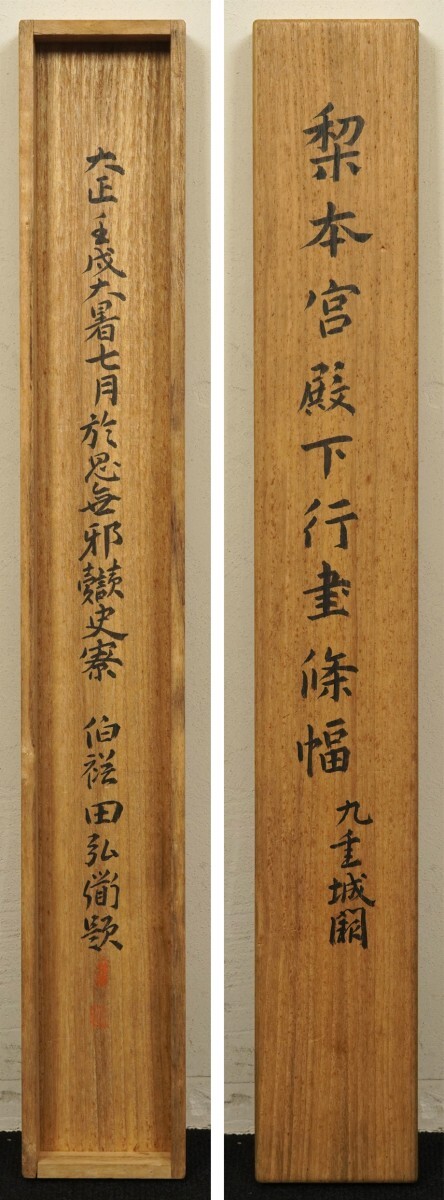 梨本宮殿下行書條幅
九重城闕
大正壬戌大暑七月於思無邪讀史寮 伯 田弘 題